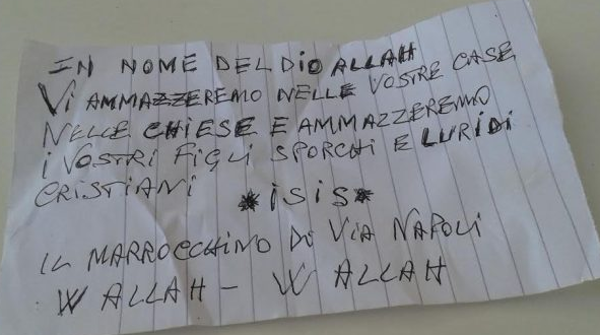 IN NOME DEL DIO ALLAH
Vi AMMAZZEREMO NELLE VOSTRE CASE
NELLE CHIESE E AMMAZZEREMO
i VOSTRI FIGLI SPORCHI E LURIDI
CRISTIANI *iSiS*
IL MARROCCHINO DI VIA NAPOLI
W ALLAH - W ALLAH